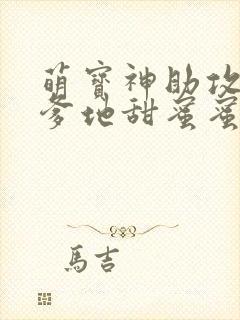 萌寶神助攻
爹地甜蜜蜜
馬吉